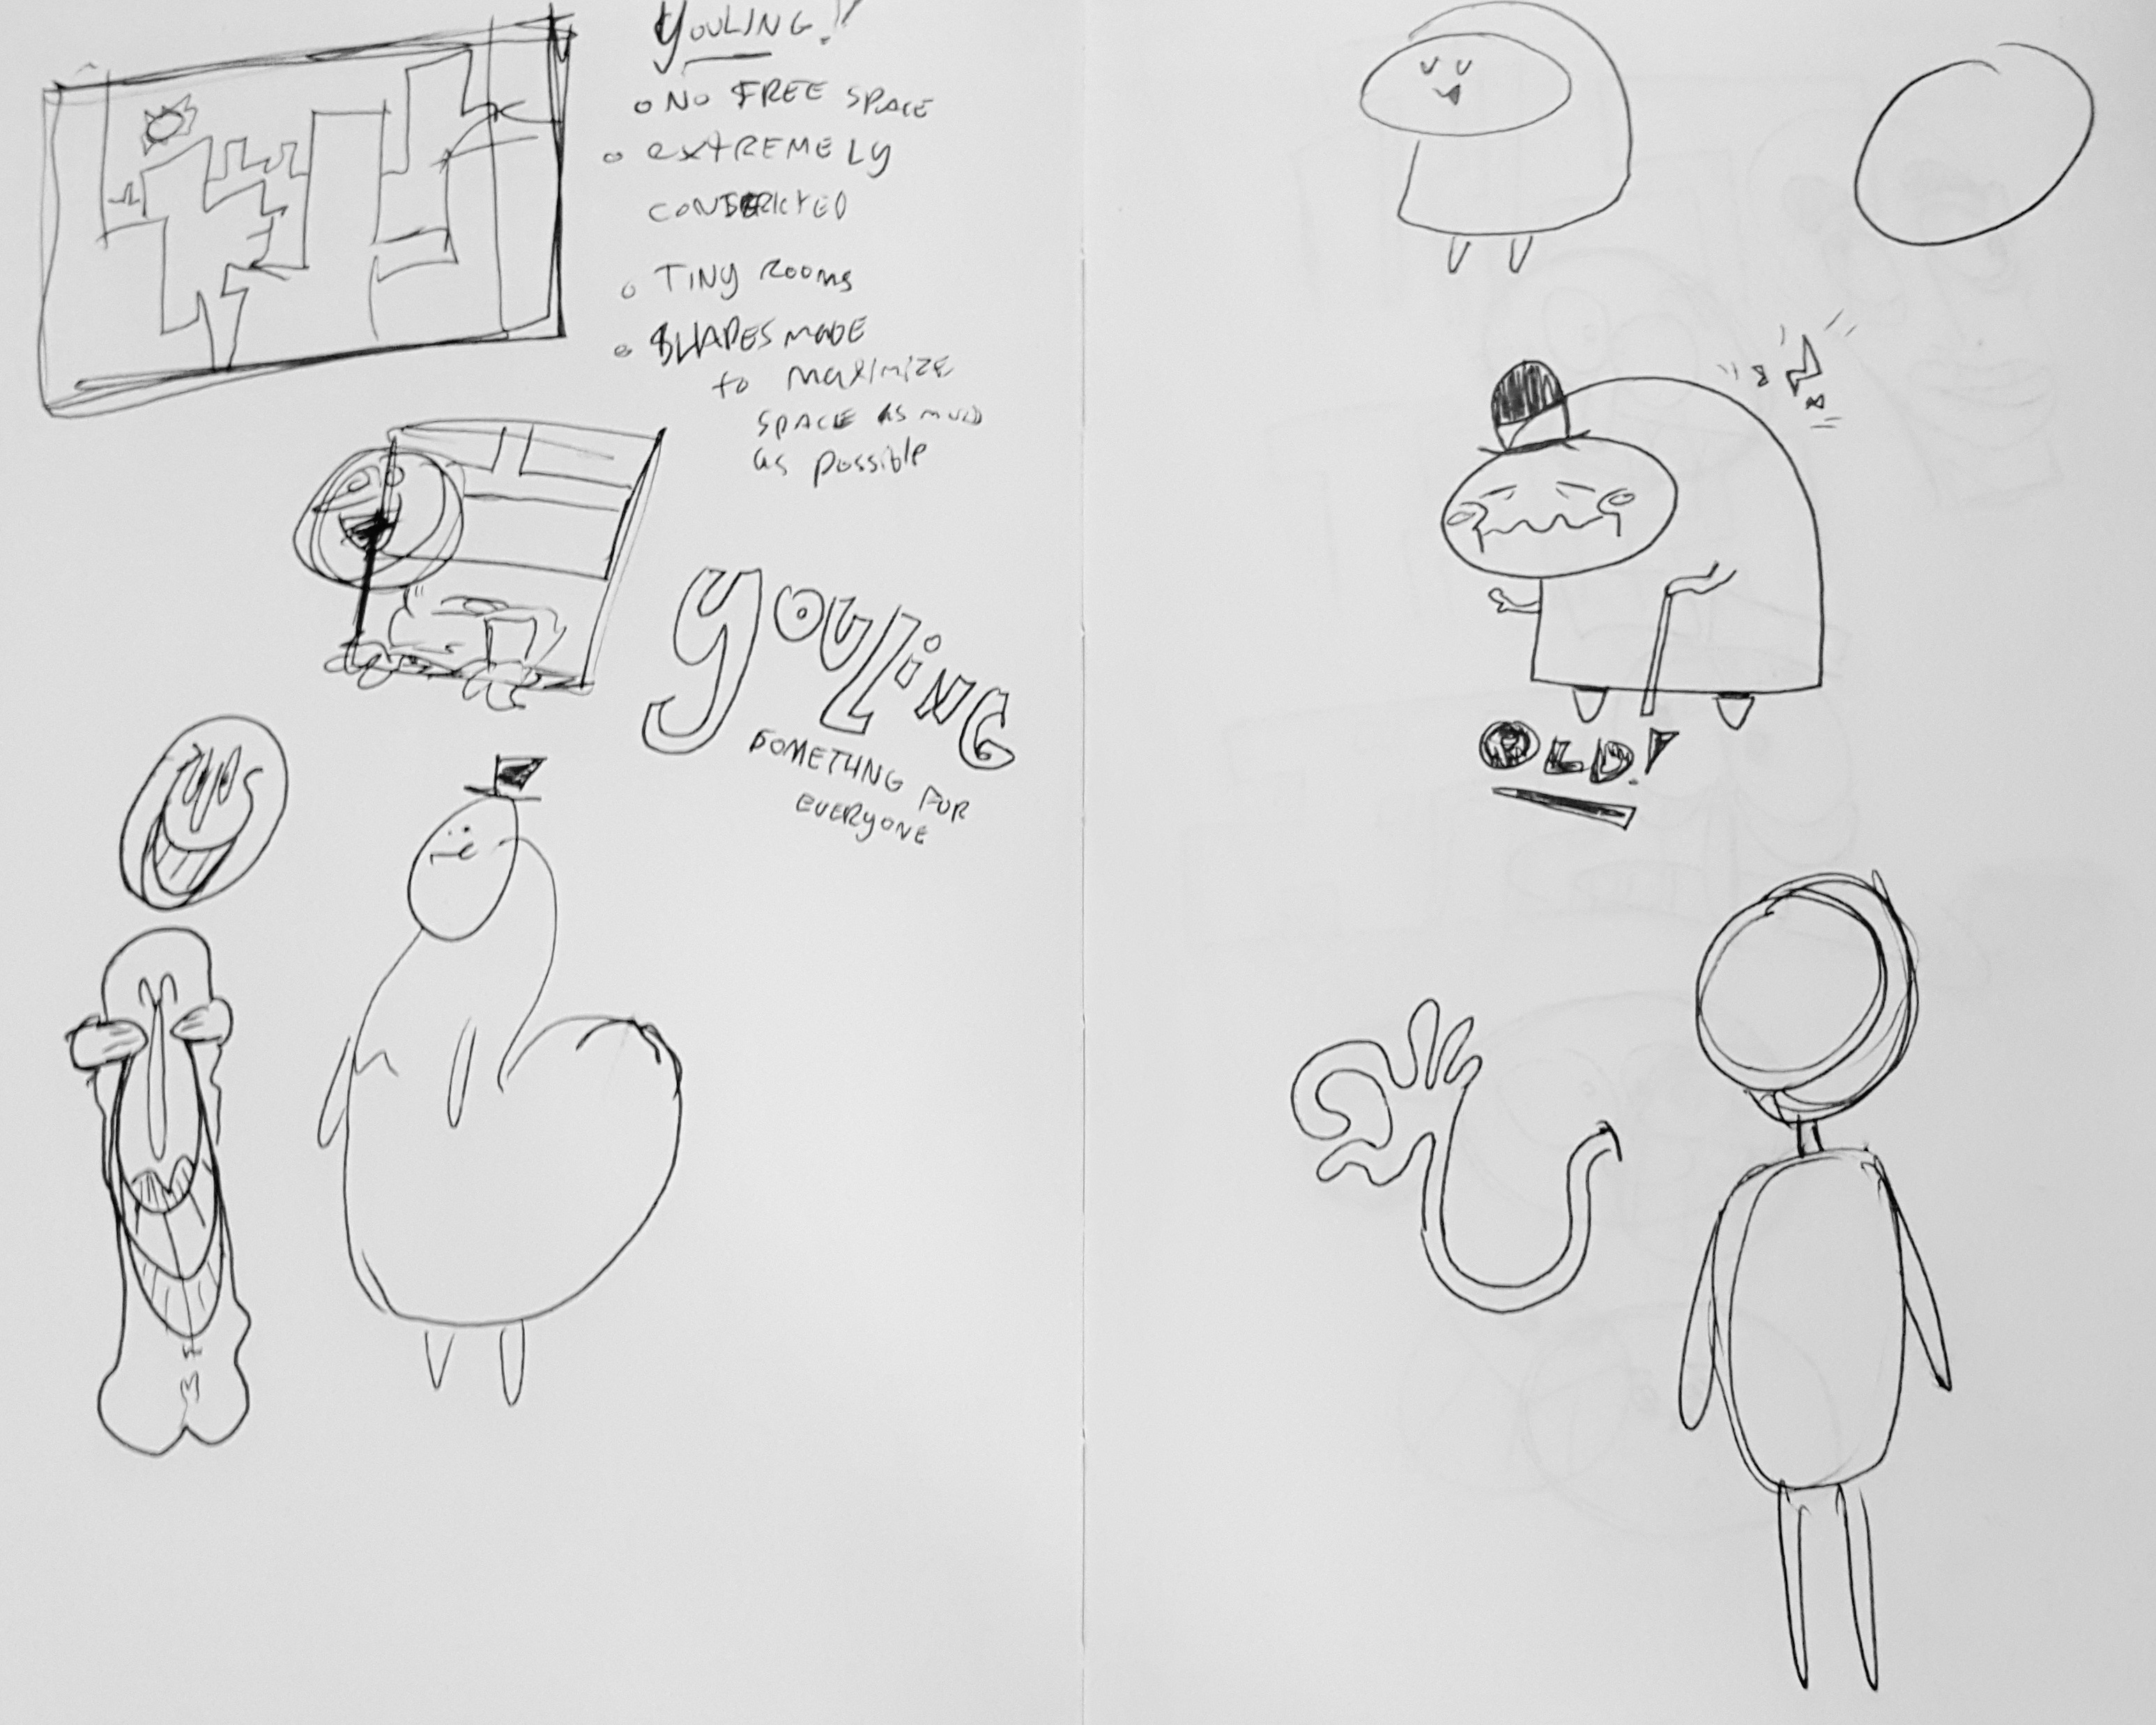 YOULING!!
NO FREE SPACE
EXTREMELY
TINY ROOMS
SHAPES MADE
to MAXIMIZE
SPACE AS MUCH
as possible
YOULING
SOMETHING FOR
EVERYONE
OLD!